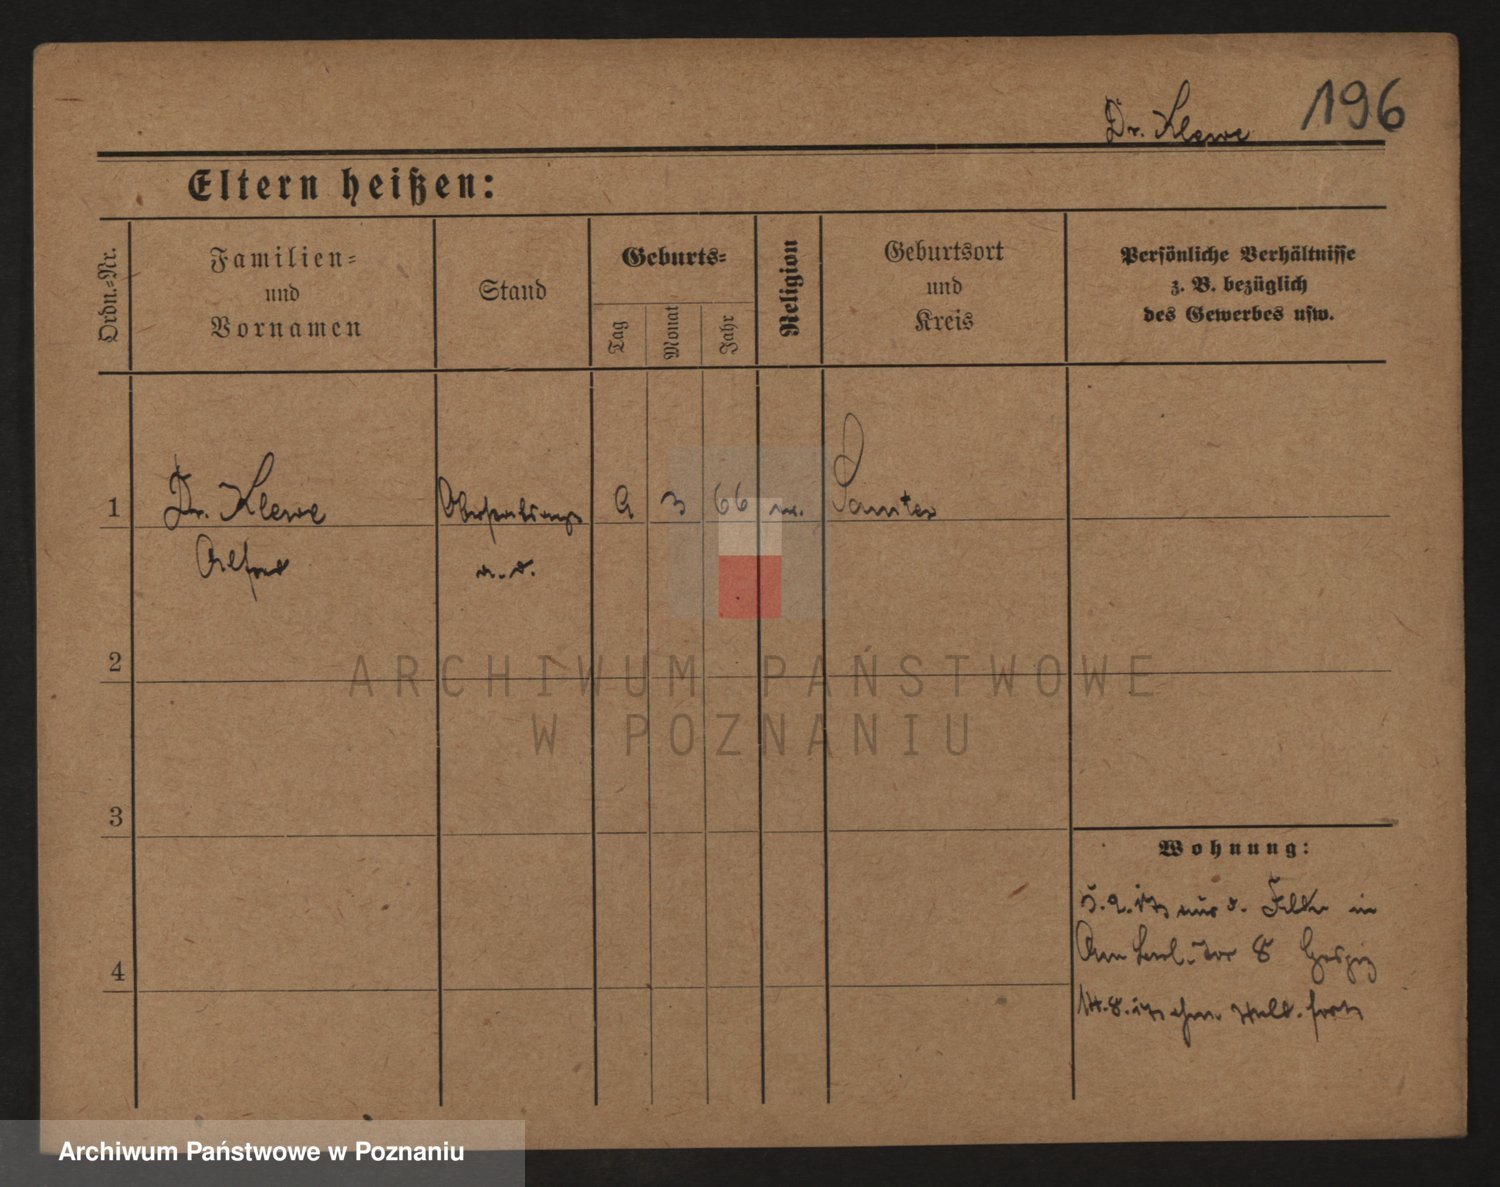 Dr. Klewe 196
Eltern heißen:
Ordn.-Nr.
Familien-
und
Vornamen
Stand
Geburts-
Tag
Monat
Jahr
Religion
Geburtsort
und
Kreis
Persönliche Verhältnisse
z. B. bezüglich
des Gewerbes usw.
1 Dr. Klewe 3 66
Alfred a. D.
2
ARCHIWUM PAŃSTWOWE
W POZNANIU
3
Wohnung:
in
Am Berl. Tor 8
4
Archiwum Państwowe w Poznaniu